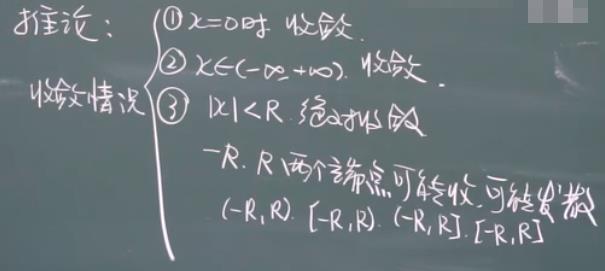 推论：
收敛情况
① x=0时 收敛.
② x∈(-∞,+∞). 收敛.
③ |x|<R. 绝对收敛
-R. R 两个端点可能收.可能发散
(-R,R). [-R,R). (-R,R]. [-R,R]